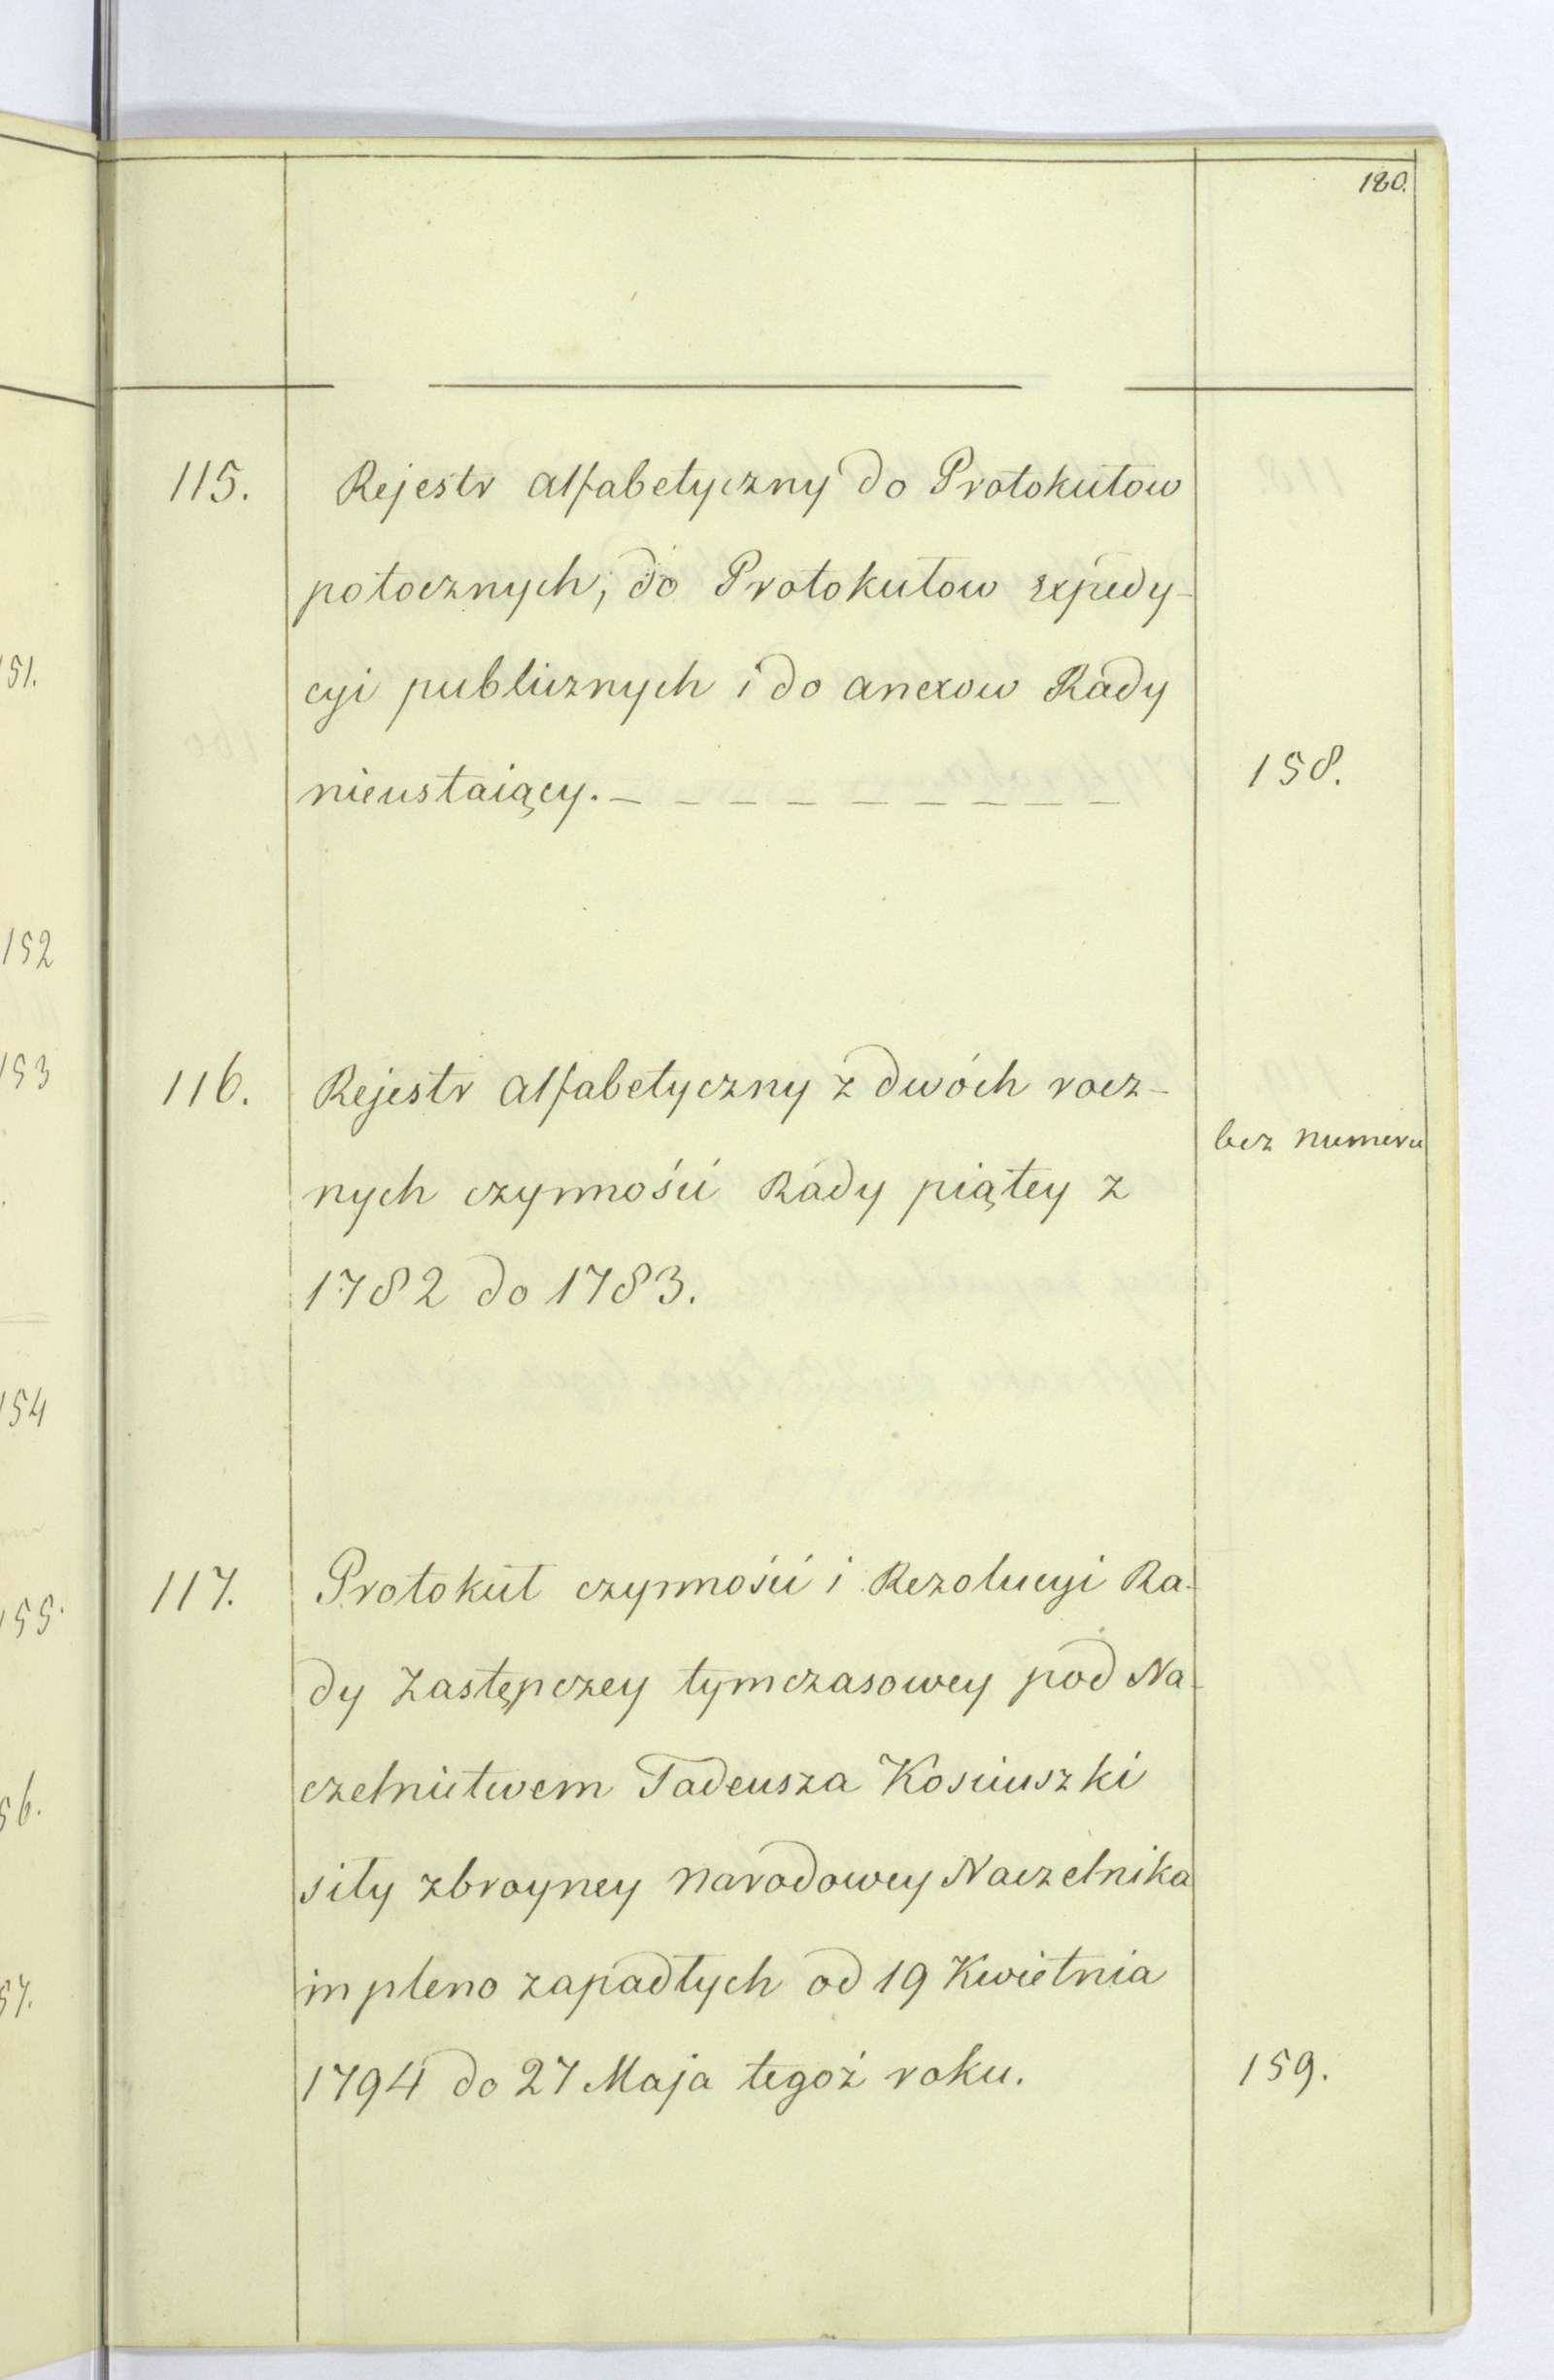 180.
115. Rejestr alfabetyczny do Protokułow
potocznych, do Protokułow expedy-
cyi publicznych i do anexow Rady
nieustaiący. – – – – – – – – – 158.
116. Rejestr alfabetyczny z dwóch rocz-
bez numeru
nych czynności Rady piątey z
1782 do 1783.
117. Protokuł czynności i Rezolucyi Ra-
dy Zastępczey tymczasowey pod Na-
czelnictwem Tadeusza Kosciuszki
siły zbroyney narodowey Naczelnika
in pleno zapadłych od 19 Kwietnia
1794 do 27 Maja tegoż roku. 159.
151.
152
153
154
155.
56.
57.